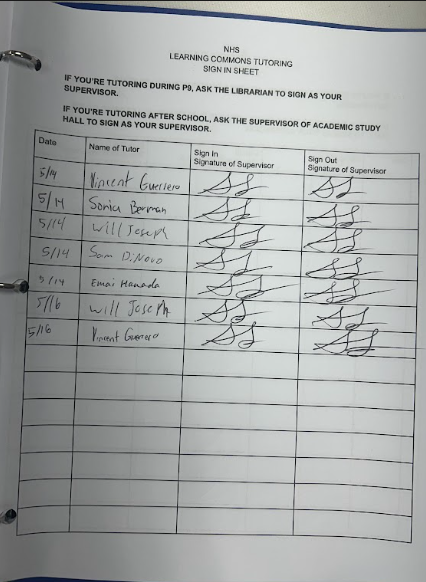 NHS
LEARNING COMMONS TUTORING
SIGN IN SHEET
IF YOU'RE TUTORING DURING P9, ASK THE LIBRARIAN TO SIGN AS YOUR
SUPERVISOR.
IF YOU'RE TUTORING AFTER SCHOOL, ASK THE SUPERVISOR OF ACADEMIC STUDY
HALL TO SIGN AS YOUR SUPERVISOR.
Date Name of Tutor Sign In Signature of Supervisor Sign Out Signature of Supervisor
5/14 Vincent Guerrero
5/14 Sonia Berman
5/14 Will Joseph
5/14 Sam DiNovo
5/14 Emai Hamada
5/16 Will Joseph
5/16 Vincent Guerrero